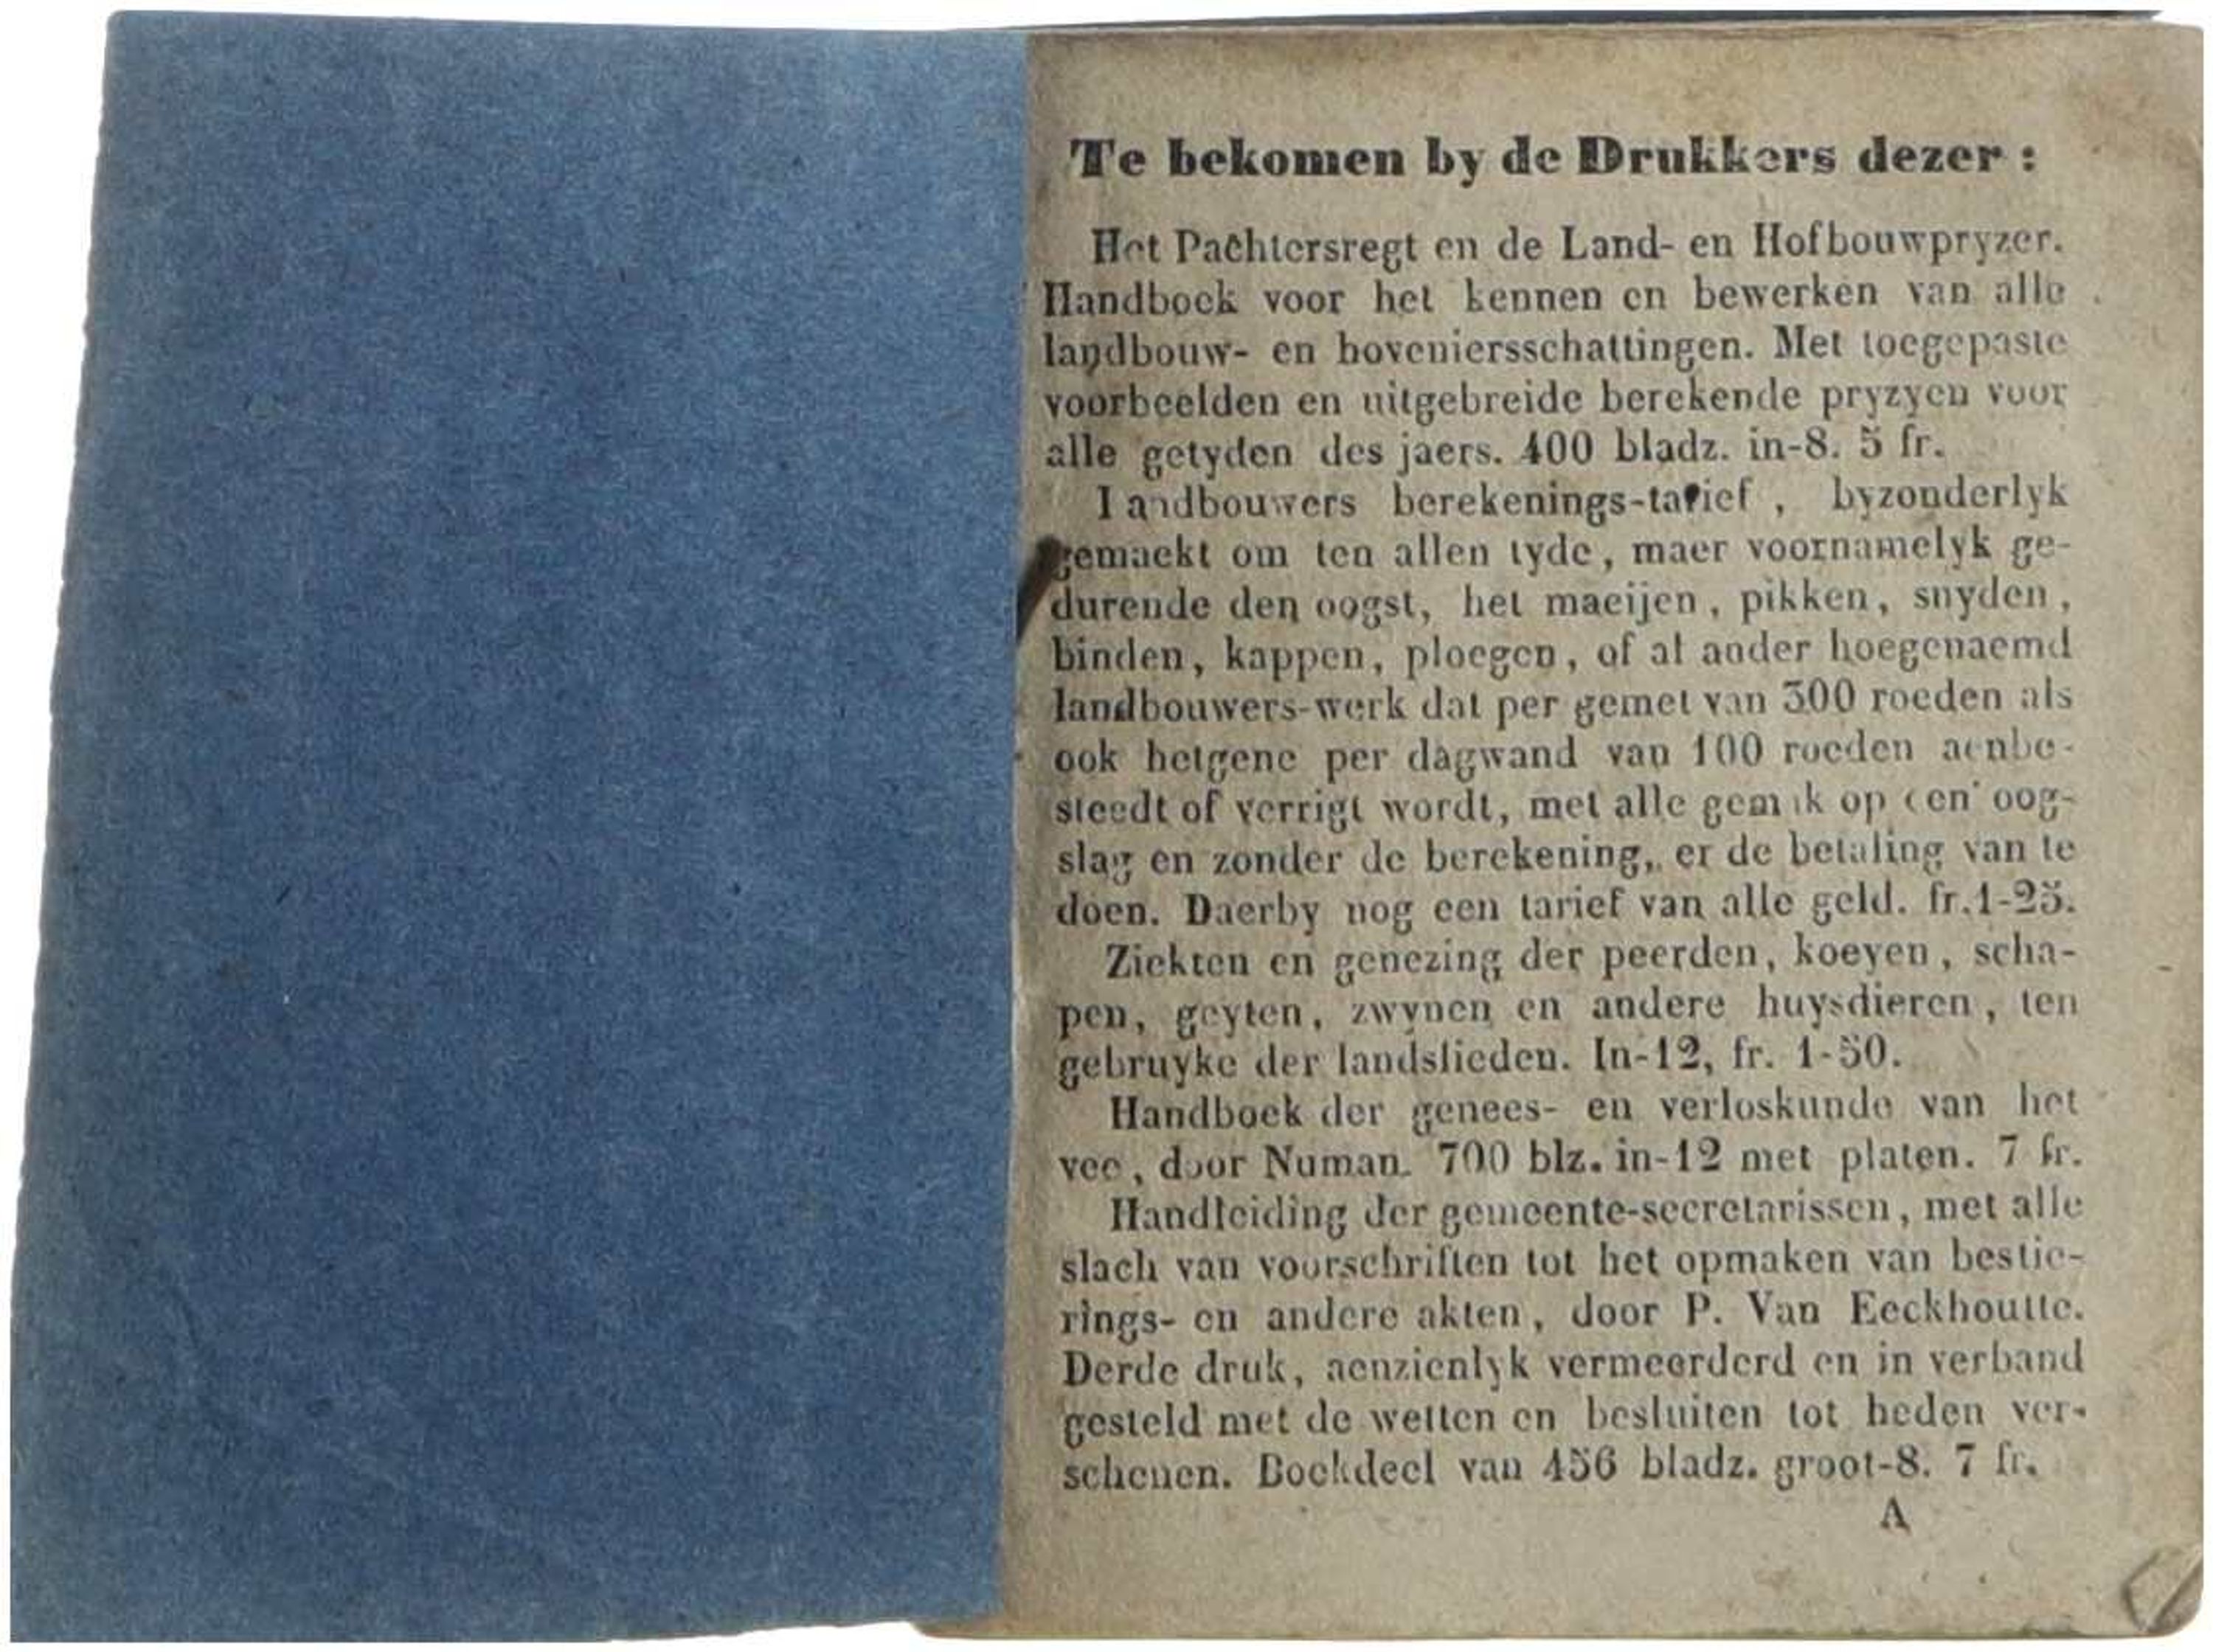 Te bekomen by de Drukkers dezer :
Het Pachtersregt en de Land- en Hofbouwpryzer.
Handboek voor het kennen en bewerken van alle
landbouw- en hoveniersschattingen. Met toegepaste
voorbeelden en uitgebreide berekende pryzyen voor
alle getyden des jaers. 400 bladz. in-8. 5 fr.
Landbouwers berekenings-tarief , byzonderlyk
gemaekt om ten allen tyde, maer voornamelyk ge-
durende den oogst, het maeijen, pikken, snyden,
binden, kappen, ploegen, of al ander hoegenaemd
landbouwers-werk dat per gemet van 300 roeden als
ook hetgene per dagwand van 100 roeden aenbe-
steedt of verrigt wordt, met alle gemak op een' oog-
slag en zonder de berekening, er de betaling van te
doen. Daerby nog een tarief van alle geld. fr. 1-25.
Ziekten en genezing der peerden, koeyen, scha-
pen, geyten, zwynen en andere huysdieren, ten
gebruyke der landslieden. In-12, fr. 1-50.
Handboek der genees- en verloskunde van het
vee, door Numan. 700 blz. in-12 met platen. 7 fr.
Handleiding der gemeente-secretarissen, met alle
slach van voorschriften tot het opmaken van bestie-
rings- en andere akten, door P. Van Eeckhoutte.
Derde druk, aenzienlyk vermeerderd en in verband
gesteld met de wetten en besluiten tot heden ver-
schenen. Boekdeel van 456 bladz. groot-8. 7 fr.
A